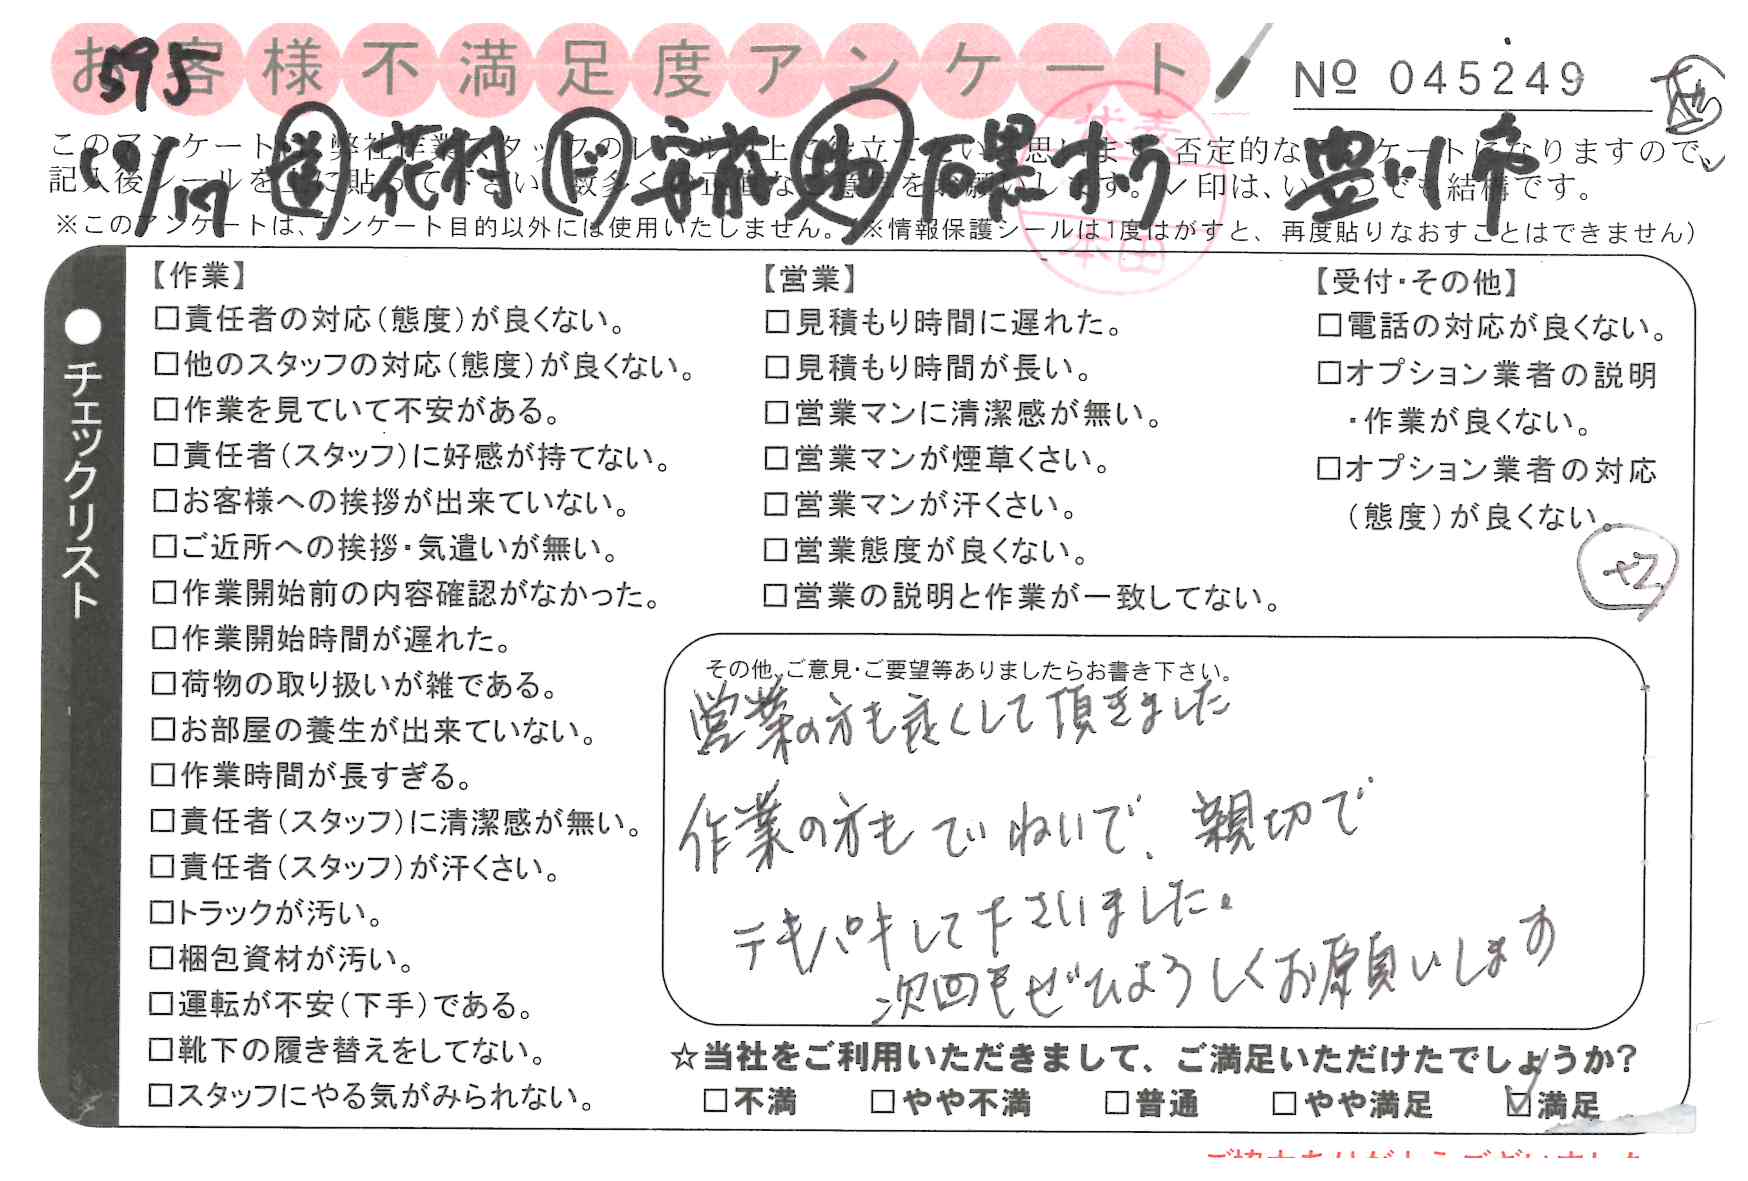 お客様不満足度アンケート
595
№ 045249
10/17 道 花村 ド 安藤 助 石黒 豊川市
このアンケート 弊社作業スタッフのレベル 上 思います 否定的な ケート なりますので、
記入後シールを上に貼って下さい。数多く 正直なご意見をお願いします。✓印は、いくつでも結構です。
※このアンケートは、アンケート目的以外には使用いたしません。(※情報保護シールは1度はがすと、再度貼りなおすことはできません)
本田
●チェックリスト
【作業】
□責任者の対応(態度)が良くない。
□他のスタッフの対応(態度)が良くない。
□作業を見ていて不安がある。
□責任者(スタッフ)に好感が持てない。
□お客様への挨拶が出来ていない。
□ご近所への挨拶・気遣いが無い。
□作業開始前の内容確認がなかった。
□作業開始時間が遅れた。
□荷物の取り扱いが雑である。
□お部屋の養生が出来ていない。
□作業時間が長すぎる。
□責任者(スタッフ)に清潔感が無い。
□責任者(スタッフ)が汗くさい。
□トラックが汚い。
□梱包資材が汚い。
□運転が不安(下手)である。
□靴下の履き替えをしてない。
□スタッフにやる気がみられない。
【営業】
□見積もり時間に遅れた。
□見積もり時間が長い。
□営業マンに清潔感が無い。
□営業マンが煙草くさい。
□営業マンが汗くさい。
□営業態度が良くない。
□営業の説明と作業が一致してない。
【受付・その他】
□電話の対応が良くない。
□オプション業者の説明
・作業が良くない。
□オプション業者の対応
(態度)が良くない。
+2
その他、ご意見・ご要望等ありましたらお書き下さい。
営業の方も良くして頂きました
作業の方もていねいで、親切で
テキパキして下さいました。
次回もぜひよろしくお願いします
☆当社をご利用いただきまして、ご満足いただけたでしょうか?
□不満 □やや不満 □普通 □やや満足 ☑満足
ご協力ありがとうございました